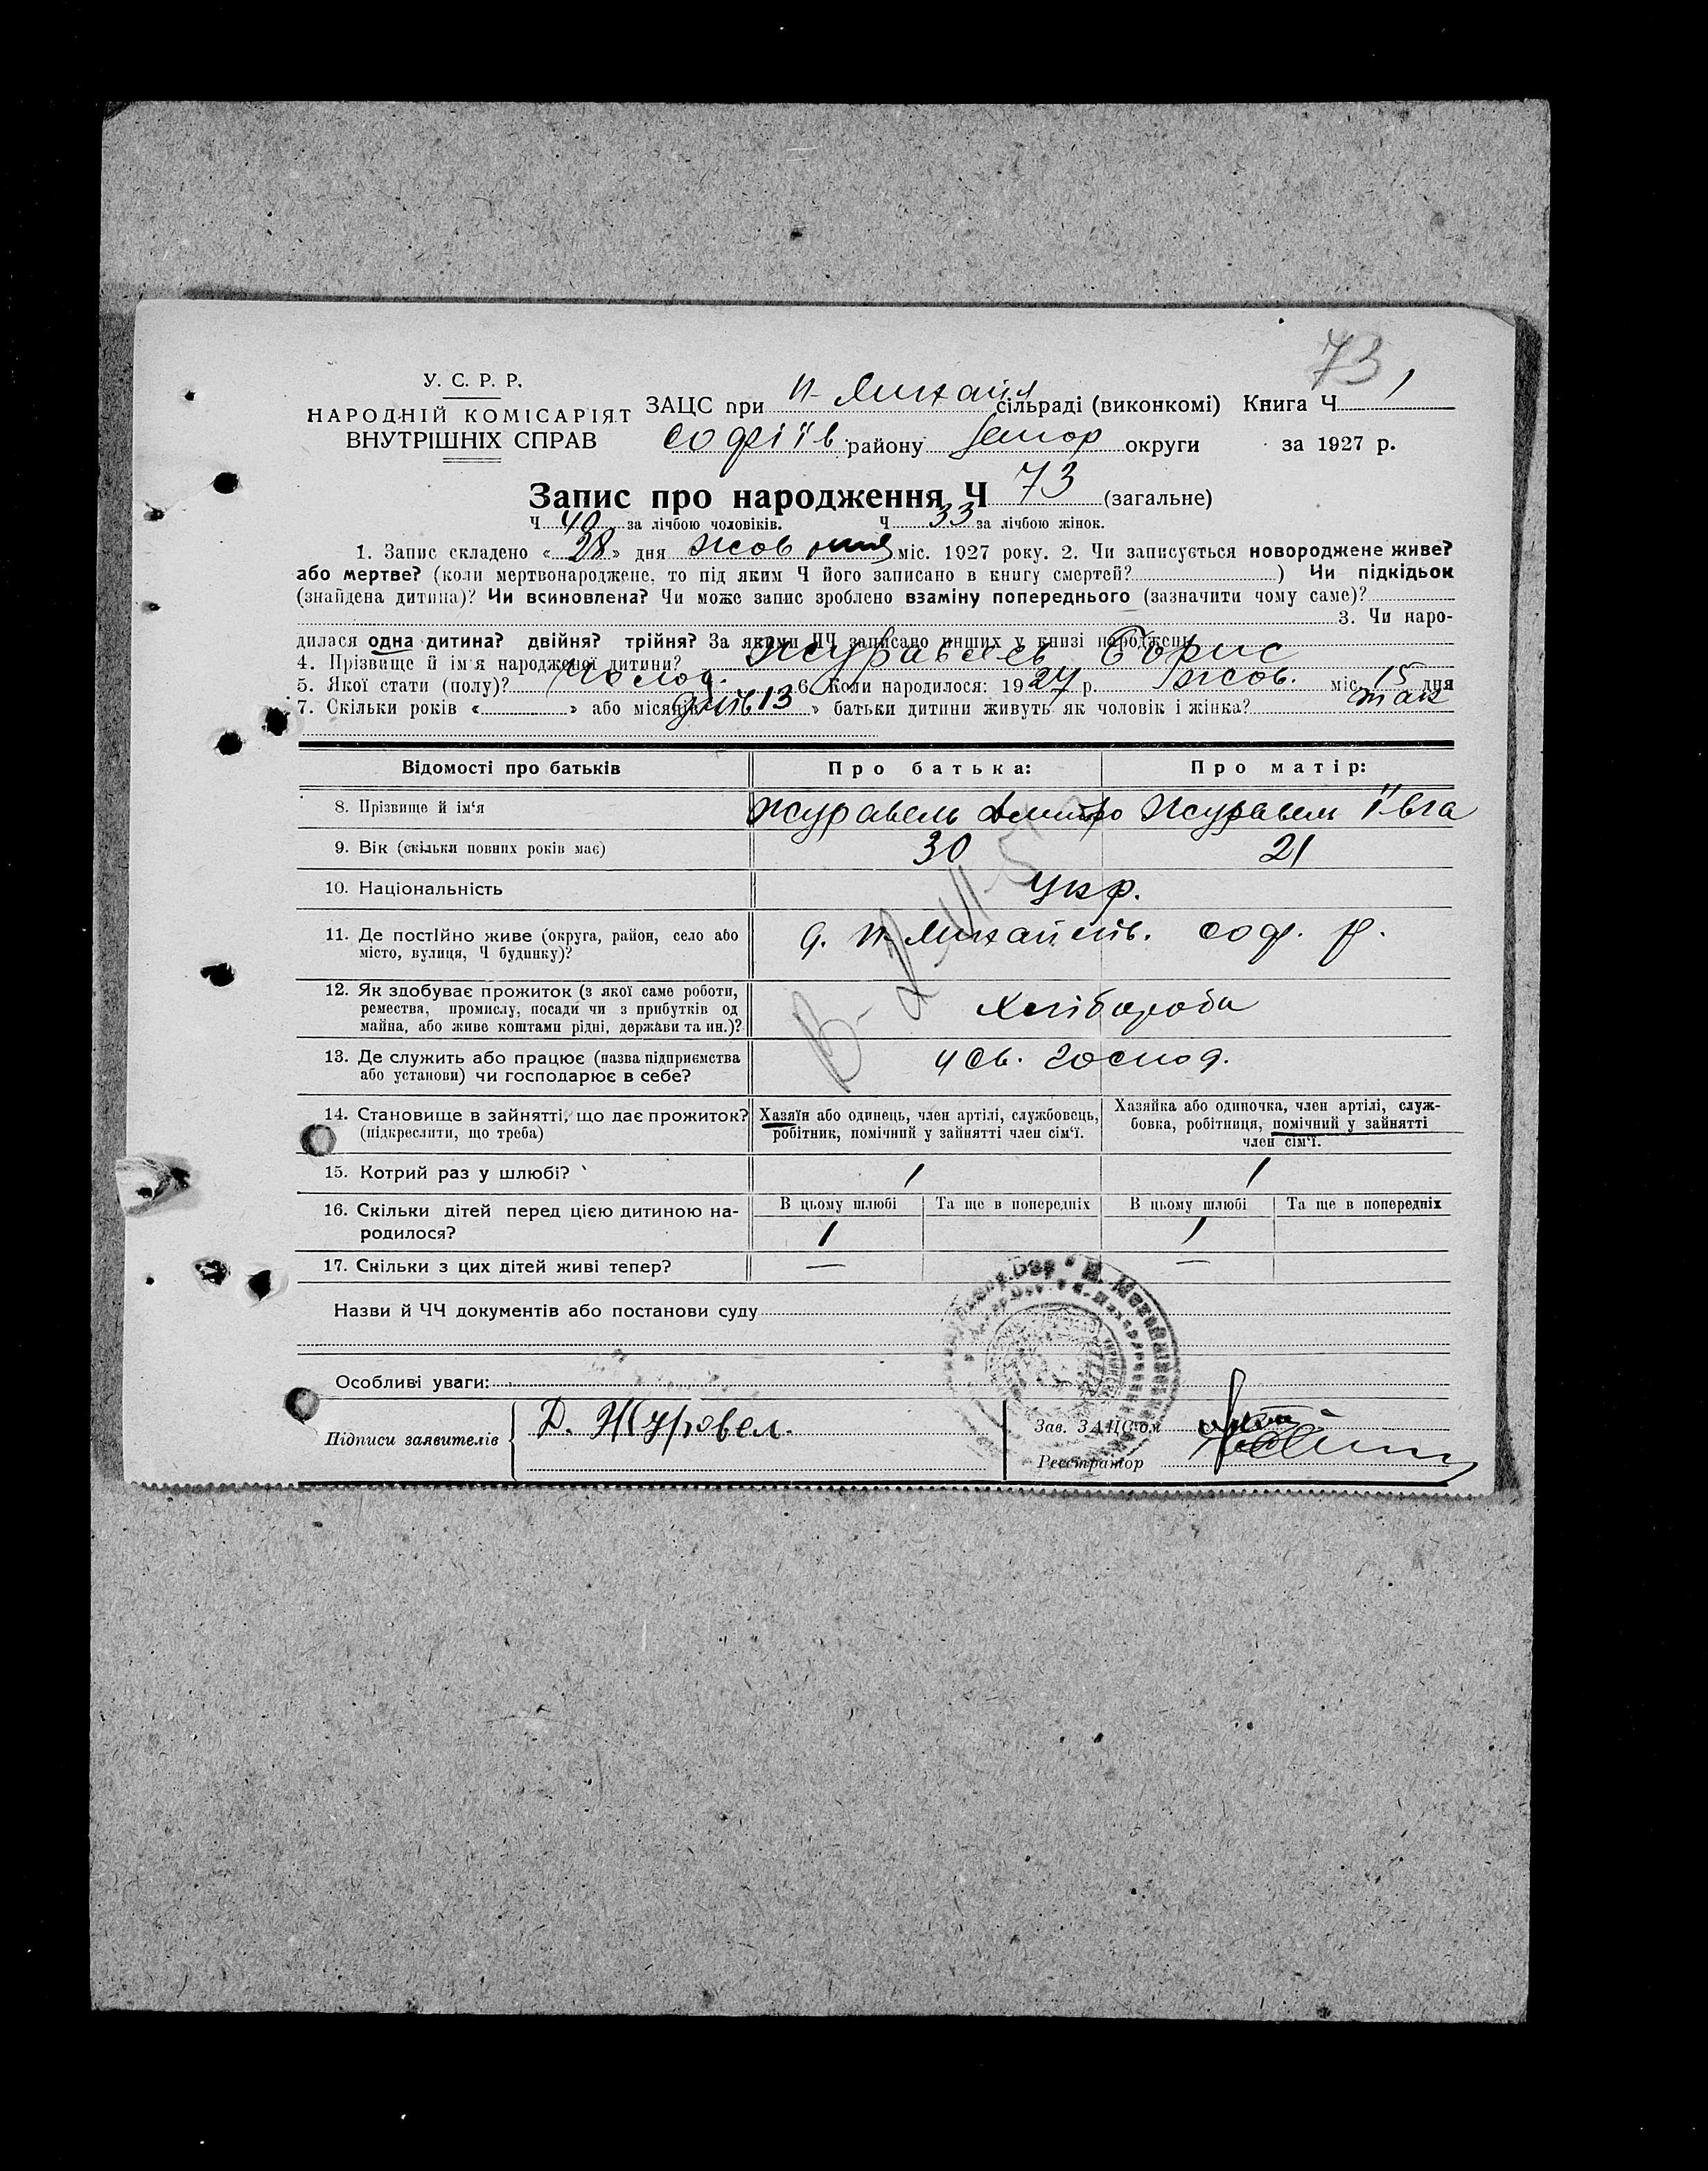 73
У. С. Р. Р.
НАРОДНІЙ КОМІСАРІЯТ
ВНУТРІШНІХ СПРАВ
ЗАЦС при Н-Михайл сільраді (виконкомі) Книга Ч. 1
Софіїв. району округи за 1927 р.
Запис про народження Ч 73 (загальне)
Ч. 40 за лічбою чоловіків. Ч. 33 за лічбою жінок.
1. Запис складено «28» дня жовтня міс. 1927 року. 2. Чи записується новороджене живе?
або мертве? (коли мертвонароджене, то під яким Ч його записано в книгу смертей? ) Чи підкідьок
(знайдена дитина)? Чи всиновлена? Чи може запис зроблено взаміну попереднього (зазначити чому саме)?
3. Чи наро-
дилася одна дитина? двійня? трійня? За якими ЧЧ записано инших у книзі народжень
4. Прізвище й ім'я народженої дитини? Журавель Борис
5. Якої стати (полу)? 6. Коли народилося: 1927 р. жов. міс. 15 дня
7. Скільки років « » або місяців 13 » батьки дитини живуть як чоловік і жінка? так
Відомості про батьків Про батька: Про матір:
8. Прізвище й ім'я Журавель Дмитро Журавель Ївга
9. Вік (скільки повних років має) 30 21
10. Національність Укр.
11. Де постійно живе (округа, район, село або
місто, вулиця, Ч будинку)? Н-Михайлів. Соф. р.
12. Як здобуває прожиток (з якої саме роботи,
ремества, промислу, посади чи з прибутків од
майна, або живе коштами рідні, держави та ин.)? Хліборобы
13. Де служить або працює (назва підприємства
або установи) чи господарює в себе? у св. господ.
14. Становище в зайнятті, що дає прожиток? (підкреслити, що треба)
Хазяїн або одинець, член артілі, службовець,
робітник, помічний у зайнятті член сім'ї.
Хазяйка або одиночка, член артілі, служ-
бовка, робітниця, помічний у зайнятті
член сім'ї.
15. Котрий раз у шлюбі? 1 1
В цьому шлюбі Та ще в попередніх В цьому шлюбі Та ще в попередніх
16. Скільки дітей перед цією дитиною на-
родилося? 1 1
17. Скільки з цих дітей живі тепер? — —
Назви й ЧЧ документів або постанови суду
Особливі уваги:
Підписи заявителів Д. Журовел.
Зав. ЗАЦС'ом
Реєстратор